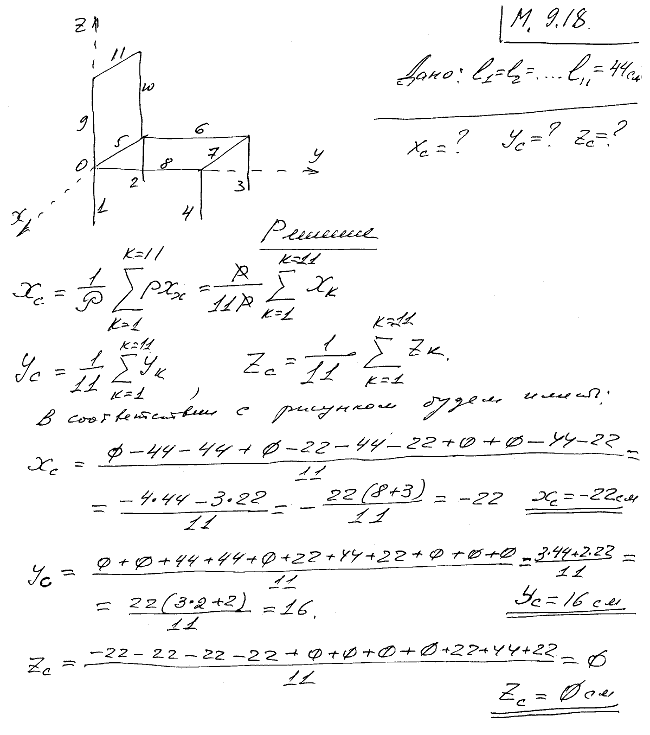 М. 9.18.
Дано: l₁=l₂=....l₁₁=44см
xc=? yc=? zc=?
z
11
10
9
5
6
0
8
7
y
2
3
x
1
4
Решение
xc = 1/P Σ(k=1, k=11) pxₖ = P/11P Σ(k=1, k=11) xₖ
yc = 1/11 Σ(k=1, k=11) yₖ , zc = 1/11 Σ(k=1, k=11) zₖ.
В соответствии с рисунком будем иметь:
xc = (0-44-44+0-22-44-22+0+0-44-22)/11 =
= (-4·44-3·22)/11 = - 22(8+3)/11 = -22 xc=-22см
yc = (0+0+44+44+0+22+44+22+0+0+0)/11 = (3·44+2·22)/11 =
= 22(3·2+2)/11 = 16. yc=16 см
zc = (-22-22-22-22+0+0+0+0+22+44+22)/11 = 0
zc = 0 см